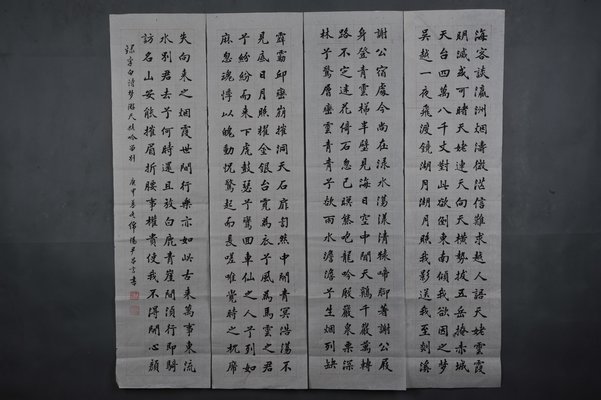 海客談瀛洲烟濤微茫信難求越人語天姥雲霞
明滅或可睹天姥連天向天橫勢拔五岳掩赤城
天台四萬八千丈對此欲倒東南傾我欲因之夢
吳越一夜飛渡鏡湖月湖月照我影送我至剡溪
謝公宿處今尚在淥水蕩漾清猿啼脚著謝公屐
身登青雲梯半壁見海日空中聞天鷄千巖萬轉
路不定迷花倚石忽已暝熊咆龍吟殷巖泉栗深
林兮驚層巒雲青青兮欲雨水澹澹兮生烟列缺
霹靂邱巒崩摧洞天石扇訇然中開青冥浩蕩不
見底日月照耀金銀台霓為衣兮風為馬雲之君
兮紛紛而來下虎鼓瑟兮鸞回車仙之人兮列如
麻忽魂悸以魄動怳驚起而長嗟唯覺時之枕席
失向來之烟霞世間行樂亦如此古來萬事東流
水別君去兮何時還且放白鹿青崖間須行即騎
訪名山安能摧眉折腰事權貴使我不得開心顏
錄李白詩夢游天姥吟留别 書